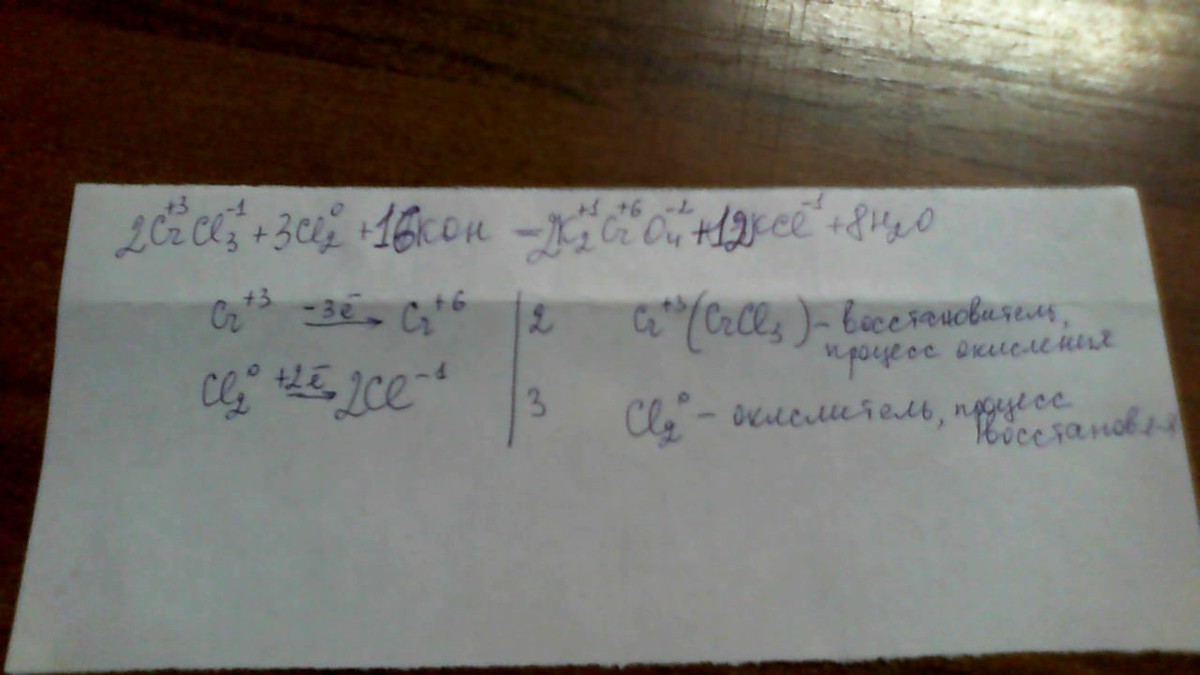 2Cr⁺³Cl₃⁻¹ + 3Cl₂⁰ + 16KOH – 2K₂⁺¹Cr⁺⁶O₄⁻² + 12KCl⁻¹ + 8H₂O
Cr⁺³ –3ē→ Cr⁺⁶ | 2 Cr⁺³(CrCl₃) – восстановитель,
процесс окисления
Cl₂⁰ +2ē→ 2Cl⁻¹ | 3 Cl₂⁰ – окислитель, процесс
восстановл-я